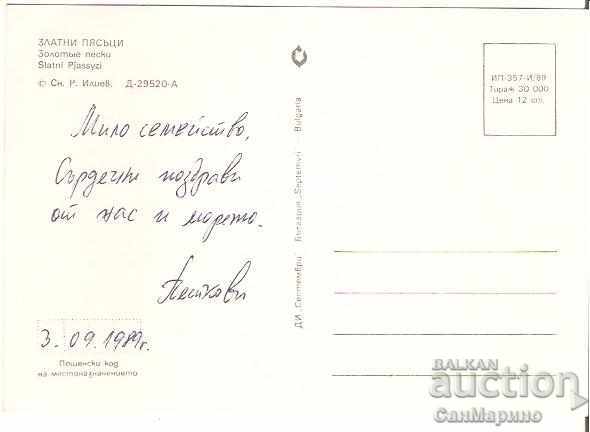 ЗЛАТНИ ПЯСЪЦИ
Золотые пески
Slatni Pjassyzi
© Сн. Р. Илиев. Д-29520-А
Мило семейство,
Сърдечни поздрави
от нас и морето.
3. 09. 1989г.
Пощенски код
на местоназначението
ДИ „Септември" България „Septemvri" Bulgaria
ИП-357-И/89
Тираж 30 000
Цена 12 ст.
BALKAN
auction
СанМарино